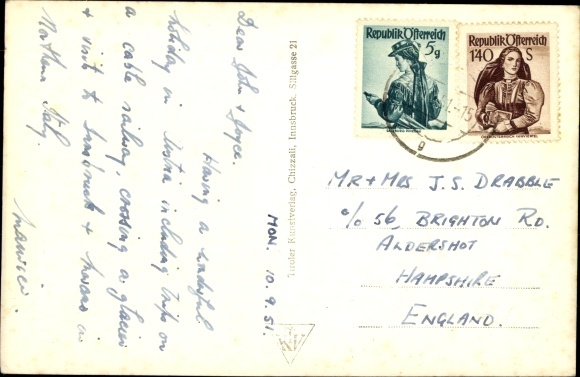 Dear John & Joyce.
Having a wonderful
holiday in Austria including trips on
a cable railway, crossing a glacier
& visit to Innsbruck & Merano in
Northern Italy.
Maurice.
MON. 10.9.51.
Tiroler Kunstverlag, Chizzali, Innsbruck, Sillgasse 21
Republik Österreich
5g
Republik Österreich
1·40 S
g
MR + MRS J.S. DRABBLE
c/o 56, BRIGHTON RD.
ALDERSHOT
HAMPSHIRE
ENGLAND.